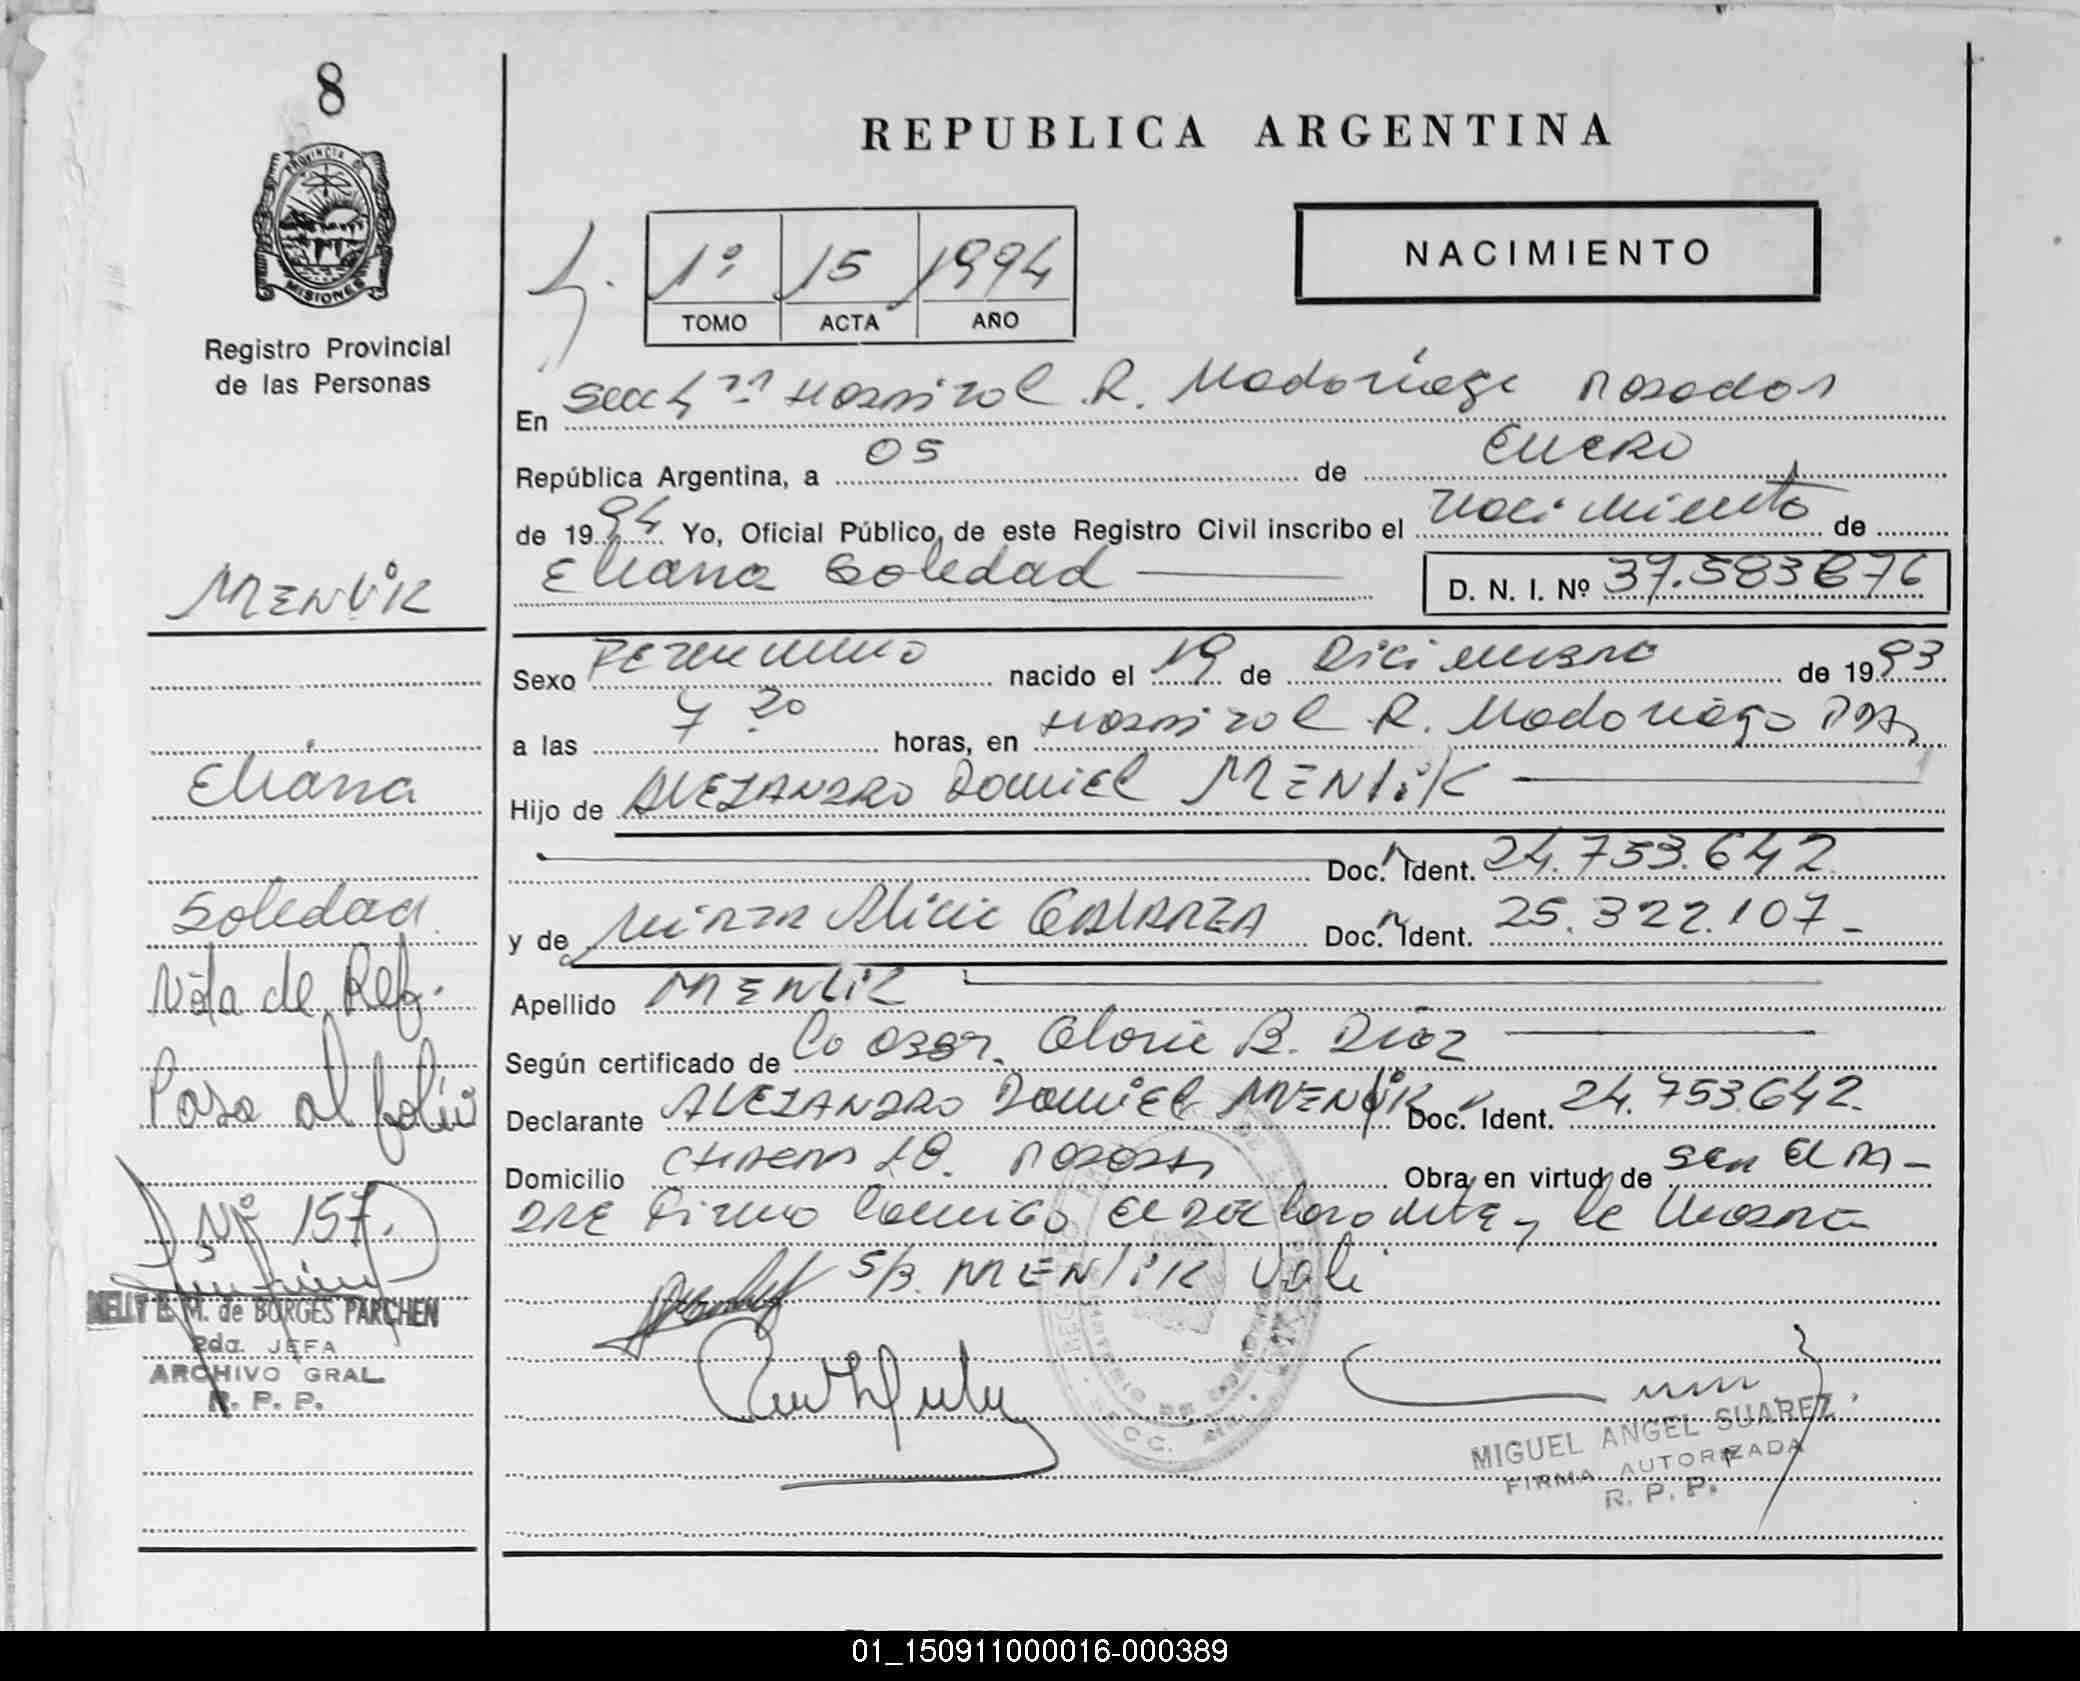 8
PROVINCIA DE
MISIONES
Registro Provincial
de las Personas
REPUBLICA ARGENTINA
1º 15 1994
TOMO ACTA AÑO
NACIMIENTO
En Secc Hospital R. Madariaga Posadas
República Argentina, a 05 de Enero
de 1994 Yo, Oficial Público, de este Registro Civil inscribo el Nacimiento de
Eliana Soledad D. N. I. Nº 37.583.676
Sexo Femenino nacido el 19 de Diciembre de 1993
a las 7 30 horas, en Hospital R. Madariaga Pdas
Hijo de ALEJANDRO Daniel MENLIK
Doc. Ident. 24.753.642
y de Mirta Alicia GALARZA Doc. Ident. 25.322.107-
Apellido MENLIK
Según certificado de Obstr. Gloria B. Diaz
Declarante ALEJANDRO Daniel MENLIK Doc. Ident. 24.753.642.
Domicilio Posadas Obra en virtud de ser el PA-
DRE Firma Conmigo el declarante y la Madre
S/R. MENLIK Vale
MENLIK
Eliana
Soledad
Nota de Ref.
Pasa al folio
Nº 157.
NELLY E. M. de BORGES PARCHEN
2da. JEFA
ARCHIVO GRAL.
R. P. P.
MIGUEL ANGEL SUAREZ
FIRMA AUTORIZADA
R. P. P.
01_150911000016-000389